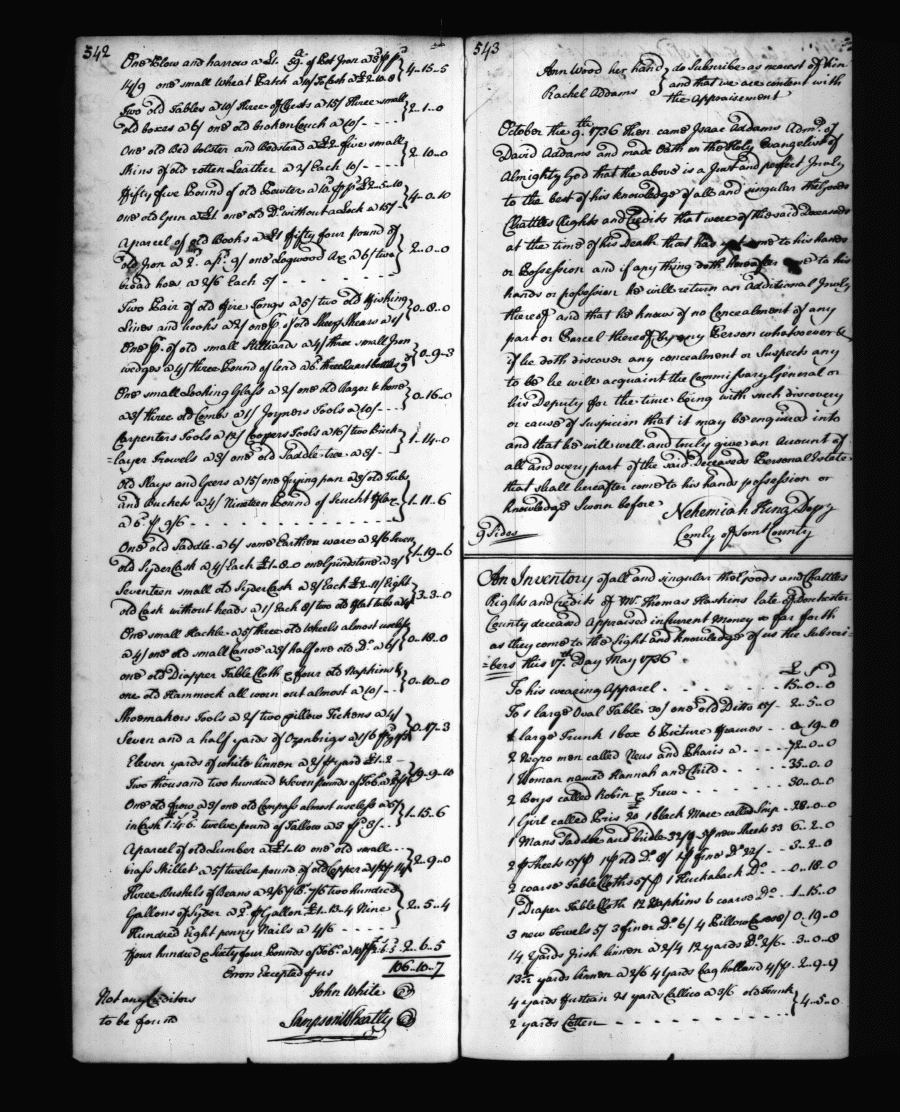 542
One Plow and harrow a £1. 59. of Pot Iron a 3 p
14/9 one small Wheat Patch a 10/ In Cash a £2.10.0 } 4-15-5
Two old Tables a 10/ three old Chests a 15/ three small
old boxes a 6/ one old broken Couch a 10/ - - - - } 2-1-0
One old Bed bolster and Bedstead a £2 five small
Skins of old rotten Leather a 2/ Each 10/ - - - - } 2-10-0
fifty five Pound of old Pewter a 10 p £2-5-10
one old Gun a £1 one old Do. without a Lock a 15/ } 4-0-10
a parcel of old Books a £1 fifty four pound of
old Iron a 2 9/ one Logwood Axe a 6/ two
broad hoes a 2/6 Each 5/ - - - - } 2-0-0
Two Pair of old fire Tongs a 5/ two old fishing
Lines and hooks a 2/ one pr. of old Sheep Shears a 1/ } 0-8-0
One pr. of old small Stilliards a 4/ three small Iron
wedges a 4/ three Pound of lead a 6 three Quart bottles } 0-9-3
One small Looking Glass a 2/ one old Razor & hone
a 3/ three old Combs a 1/ Joyners Tools a 10/ - - - } 0-16-0
Carpenters Tools a 12/ Coopers Tools a 16/ two Brick
=layer Trowels a 3/ one old Saddle tree a 3/ - } 1-14-0
Old Slays and Geers a 15/ one frying pan a 3/ old Tubs
and Buckets a 4/ Nineteen Pound of flax
a 6 p 9/6 - - - - - - - - } 1-11-6
One old Saddle a 6/ some Earthen ware a 2/6 seven
old Syder Cask a 4/ Each £1-8-0 one Grindstone a 3/ } 1-19-6
Seventeen small old Syder Cask a 3/ Each £2-11/ Eight
old Cask without heads a 1/ Each 8/ two old flat tubs a 4/ } 3-3-0
One small Hackle a 5/ three old Wheels almost useless
a 4/ one old small Canoe a 3/ half one old Do. a 6/ } 0-18-0
one old Diapper Table Cloth & four old Napkins &
one old Hammock all worn out almost a 10/ - - - } 0-10-0
Shoemakers Tools a 2/ two pillow Tickens a 4/
Seven and a half yards of Ozenbrigs a 1/6 } 0-17-3
Eleven yards of white linnen a 2/ p yard £1-2 -
Two thousand two hundred & seven pounds of Tob. } 9-9-10
One old frow a 3/ one old Compass almost useless a 5/
in Cash 1.4.6. twelve pound of Tallow a 3 p 3/ - - } 1-15-6
A parcel of old Lumber a £1-10 one old small - -
brass Skillet a 5/ twelve pound of old Copper } 2-9-0
Three Bushels of Beans a 2/6 p B. 7/6 two hundred
Gallons of Syder a 2 p Gallon £1-13-4 Nine
Hundred Eight penny Nails a 4/6 - - - - } 2-5-4
four hundred & Sixty four Pounds of Tob. - 2-6-5
106-10-7
Errors Excepted p us
Not any Creditors
to be found
John White
Sampson Wheatly
543
Ann Wood her hand } do Subscribe as nearest of kin
Rachel Addams } and that we are content with
the Appraisement
October the 9th. 1736 then came Isaac Addams Admr. of
David Addams and made Oath on the Holy Evangelist of
Almighty God that the above is a Just and perfect Invty
to the best of his knowledge of all and singular the goods
Chattles Rights and Credits that were of the said Deceaseds
at the time of his Death that has yet come to his hands
or Possession and if any thing doth hereafter come to his
hands or possession he will return an Additional Invty
thereof and that he knows of no Concealment of any
part or Parcel thereof by any Person whatsoever &
if he doth discover any concealment or Suspects any
to be he will acquaint the Commissary General or
his Deputy for the time being with such discovery
or cause of Suspicion that it may be enquired into
and that he will well and truly give an Account of
all and every part of the said Deceaseds Personal Estate
that shall hereafter come to his hands possession or
knowledge Sworn before
Nehemiah King Depy
Comsy of Som. County
9 Sides
An Inventory of all and singular the Goods and Chattles
Rights and Credits of Mr. Thomas Haskins late of Dorchester
County deceased Appraised in Current Money so far forth
as they come to the Sight and knowledge of us the Subscri-
=bers this 17th. Day May 1736
£ S D
To his wearing Apparel - - - - 15-0-0
To 1 large Oval Table 30/ one old Ditto 15/ - 2-5-0
1 large Trunk 1 box 6 Picture frames - - 0-19-0
2 Negro men called Neus and Pharis a - - - 72-0-0
1 Woman named Hannah and Child - - - - 35-0-0
2 Boys called Robin & Trew - - - - 30-0-0
1 Girl called Iris 20 1 black Mare called Snip - 28-0-0
1 Mans Saddle and bridle 32/6 3 pr new Sheets 6-2-0
2 pr Sheets 15/ 1 pr old Do. 1 pr fine Do. 22/ - - 3-2-0
2 coarse Table Cloths 5/ 1 Huckaback Do. - - 0-18-0
1 Diaper Table Cloth 12 Napkins 6 coarse Do. - - 1-15-0
3 new Towels 5/ 3 finer Do. 6/ 4 Pillow Cases 0-19-0
14 yards Irish linnen a 2/4 12 yards Do. 2/6 - - 3-0-8
13½ yards linnen a 2/6 4 yards Cag holland 4/ - 2-9-9
4 yards fustian 21 yards Callico a 3/6 old Trunk
2 yards Cotten - - - - - - } 4-5-0